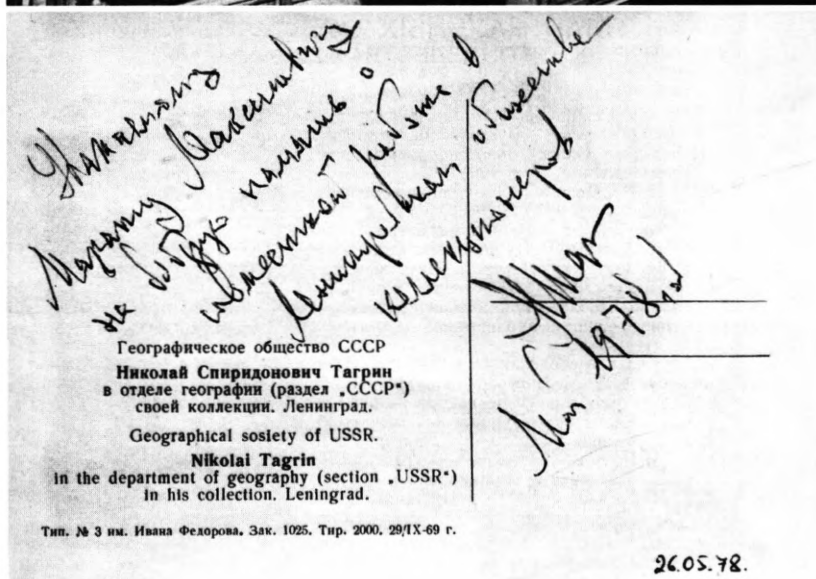 Уважаемому
Марату Максимовичу
на добрую память о
совместной работе в
Ленинградском обществе
коллекционеров
Май 1978 г.
Географическое общество СССР
Николай Спиридонович Тагрин
в отделе географии (раздел „СССР")
своей коллекции. Ленинград.
Geographical sosiety of USSR.
Nikolai Tagrin
in the department of geography (section „USSR")
in his collection. Leningrad.
Тип. № 3 им. Ивана Федорова. Зак. 1025. Тир. 2000. 29/IX-69 г.
26.05.78.